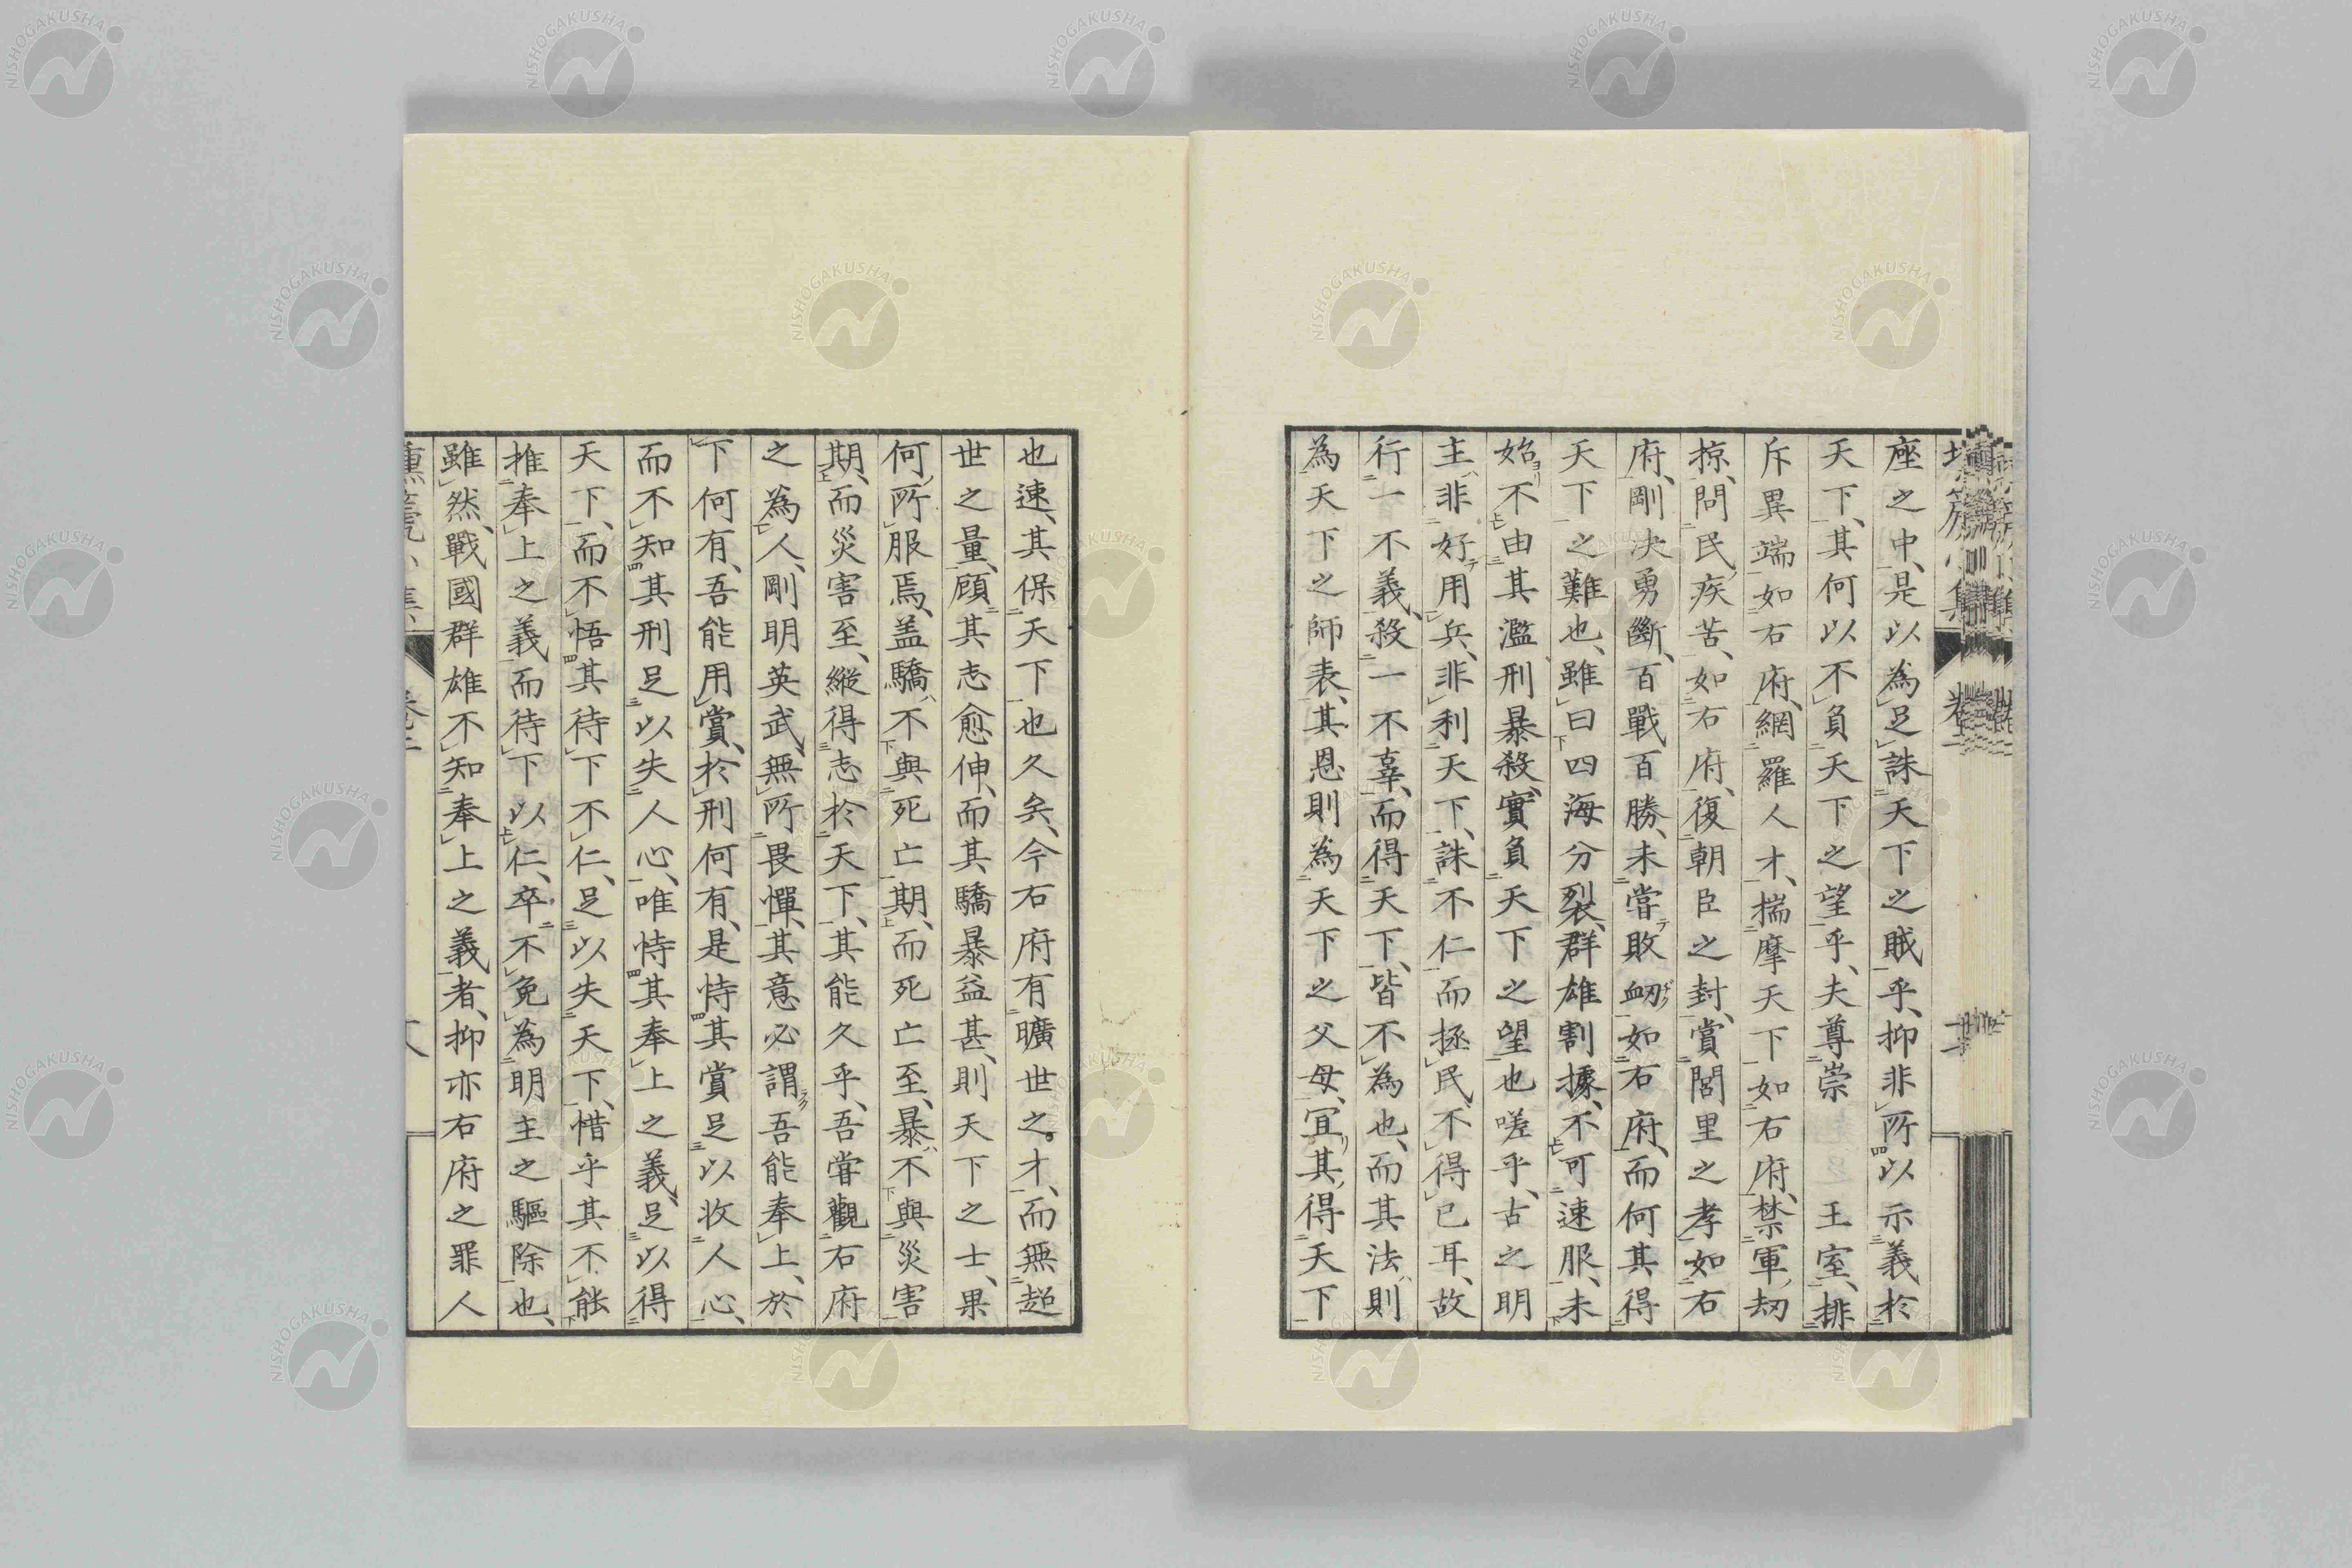 座之中、是以為足誅天下之賊乎、抑非所以示義於
天下、其何以不負天下之望乎、夫尊崇 王室、排
斥異端如右府、網羅人才、揣摩天下如右府、禁軍劫
掠、問民疾苦、如右府、復朝臣之封、賞閭里之孝如右
府、剛决勇斷、百戰百勝、未嘗敗衂如右府、而何其得
天下之難也、雖曰四海分裂、群雄割據、不可速服、未
始不由其濫刑暴殺、實負天下之望也嗟乎、古之明
主非好用兵、非利天下、誅不仁而拯民不得已耳、故
行一不義、殺一不辜、而得天下、皆不為也、而其法則
為天下之師表、其恩則為天下之父母、宜其得天下
也速、其保天下也久矣、今右府有曠世之才、而無超
世之量、顧其志愈伸、而其驕暴益甚、則天下之士、果
何所服焉、盖驕不與死亡期、而死亡至、暴不與災害
期、而災害至、縱得志於天下、其能久乎、吾嘗觀右府
之為人、剛明英武、無所畏憚、其意必謂吾能奉上、於
下何有、吾能用賞、於刑何有、是恃其賞足以收人心、
而不知其刑足以失人心、唯恃其奉上之義、足以得
天下、而不悟其待下不仁、足以失天下、惜乎其不能
推奉上之義而待下以仁、卒不免為明主之驅除也、
雖然、戰國群雄不知奉上之義者、抑亦右府之罪人
NISHOGAKUSHA